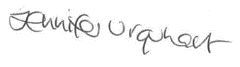 Jennifer Urquhart